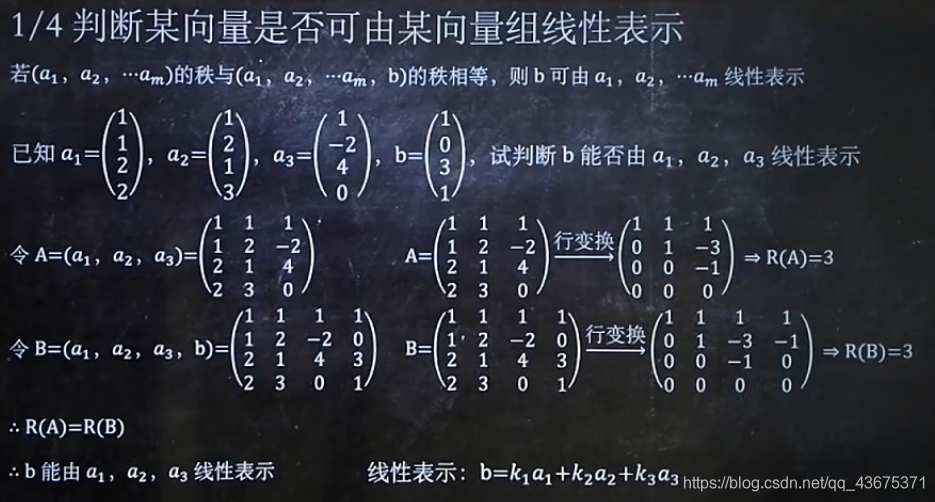 1/4 判断某向量是否可由某向量组线性表示
若(a₁，a₂，⋯aₘ)的秩与(a₁，a₂，⋯aₘ，b)的秩相等，则 b 可由 a₁，a₂，⋯aₘ 线性表示
已知 a₁=(1 1 2 2)，a₂=(1 2 1 3)，a₃=(1 −2 4 0)，b=(1 0 3 1)，试判断 b 能否由 a₁，a₂，a₃ 线性表示
令 A=(a₁，a₂，a₃)=(1 1 1; 1 2 −2; 2 1 4; 2 3 0) A=(1 1 1; 1 2 −2; 2 1 4; 2 3 0) 行变换→ (1 1 1; 0 1 −3; 0 0 −1; 0 0 0) ⇒ R(A)=3
令 B=(a₁，a₂，a₃，b)=(1 1 1 1; 1 2 −2 0; 2 1 4 3; 2 3 0 1) B=(1 1 1 1; 1 2 −2 0; 2 1 4 3; 2 3 0 1) 行变换→ (1 1 1 1; 0 1 −3 −1; 0 0 −1 0; 0 0 0 0) ⇒ R(B)=3
∴ R(A)=R(B)
∴ b 能由 a₁，a₂，a₃ 线性表示 线性表示：b=k₁a₁+k₂a₂+k₃a₃
https://blog.csdn.net/qq_43675371